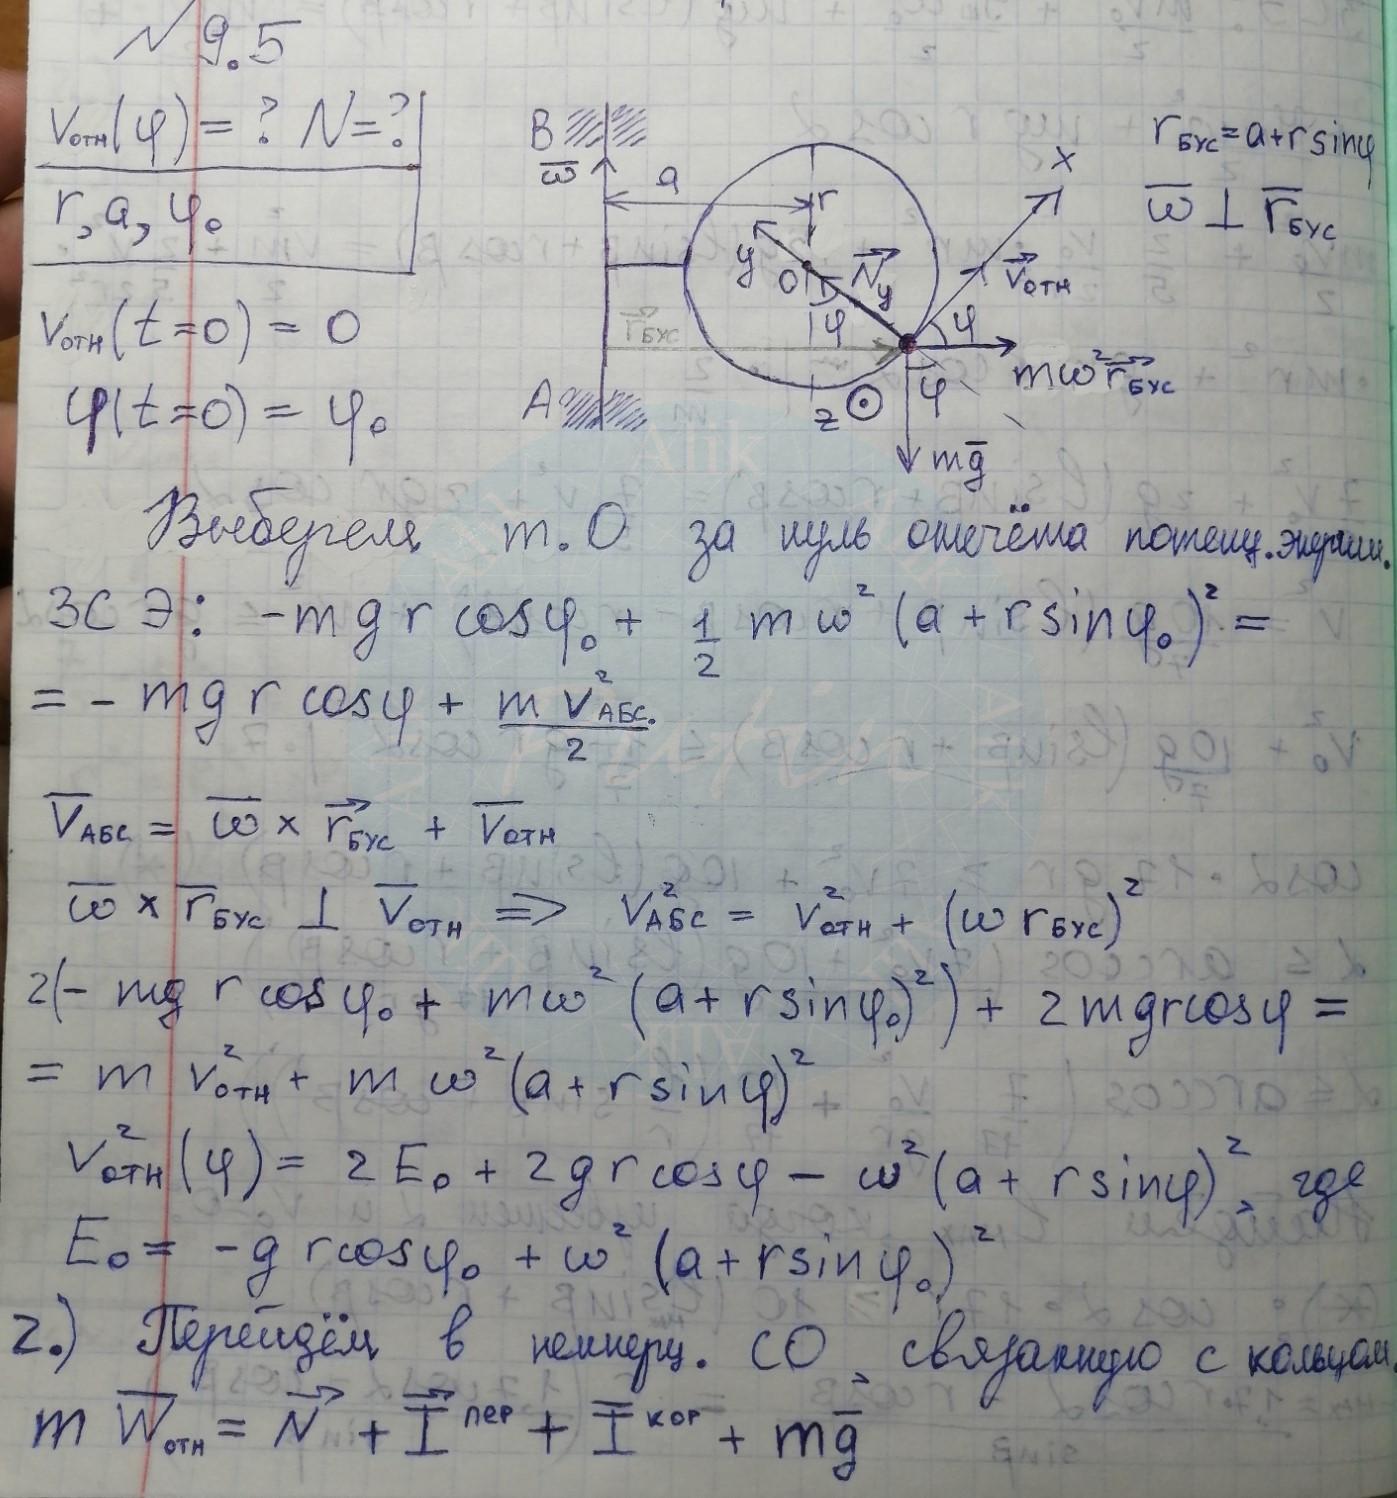 № 9.5
Vотн(φ) = ? N = ?
r, a, φ₀
Vотн(t=0) = 0
φ(t=0) = φ₀
B
ω̅
a
r
y
O
N⃗y
φ
r⃗БУС
A
z
x
V⃗отн
φ
mω²r⃗БУС
φ
mg̅
rБУС = a + r sinφ
ω̅ ⊥ r̅БУС
Выберем т. O за нуль отсчёта потенц. энергии.
ЗСЭ: -mgr cosφ₀ + 1/2 mω²(a + r sinφ₀)² =
= - mgr cosφ + mV²АБС./2
V̅АБС = ω̅ × r⃗БУС + V̅отн
ω̅ × r̅БУС ⊥ V̅отн => V²АБС = V²отн + (ω rБУС)²
2(- mgr cosφ₀ + mω²(a + r sinφ₀)²) + 2mgr cosφ =
= m V²отн + mω²(a + r sinφ)²
V²отн(φ) = 2E₀ + 2gr cosφ - ω²(a + r sinφ)², где
E₀ = -gr cosφ₀ + ω²(a + r sinφ₀)²
2.) Перейдём в неинерц. СО, связанную с кольцом.
m W̅отн = N⃗ + I⃗ᵖᵉʳ + I̅ᵏᵒʳ + mg̅
Alik